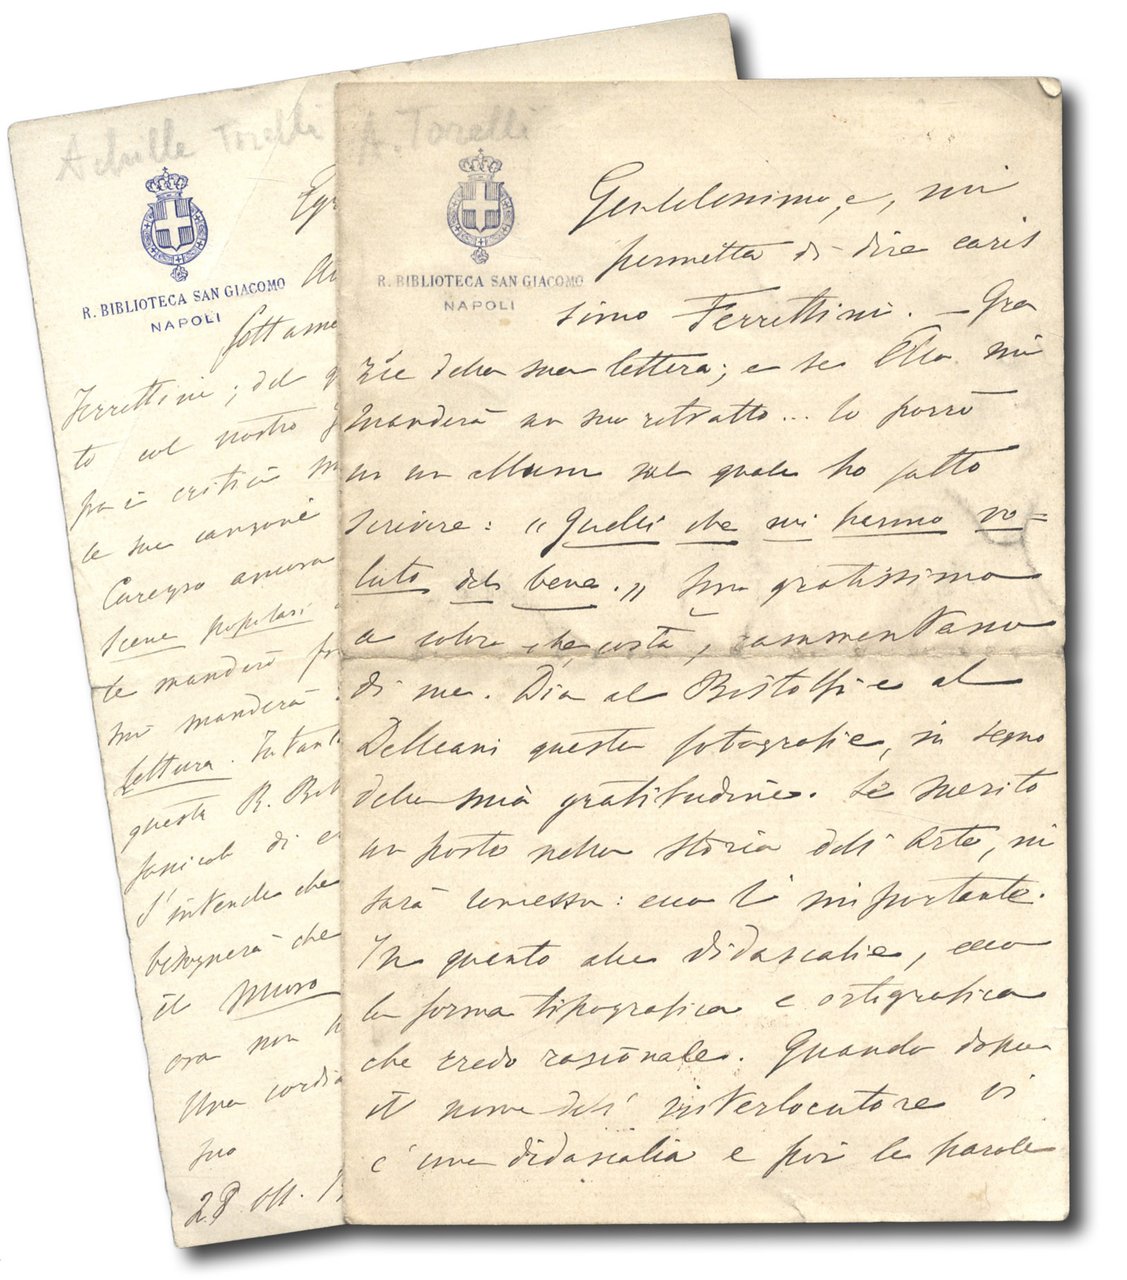 Achille Torelli
R. BIBLIOTECA SAN GIACOMO
NAPOLI
Ferrettini; del
to col nostro
fra i critici
le sue canzoni
Coraggio ancora
Scene popolari
te manderò
mi manderà
Lettura. Intanto
questa R. Bib
S'intende che
bisognerà che
il Muro
ora non
Una cordia
suo
28 ott. 1
A. Torelli
R. BIBLIOTECA SAN GIACOMO
NAPOLI
Gentilissimo, e, mi
permetta di dire caris
simo Ferrettini. – Gra
zie della sua lettera; e se Ella mi
manderà un suo ritratto... lo porrò
in un album sul quale ho fatto
scrivere: "Quelli che mi hanno vo=
luto del bene." Son gratissimo
a coloro che, costà, rammentano
di me. Dia al Bistolfi e al
Delleani queste fotografie, in segno
della mia gratitudine. Se merito
un posto nella storia dell'Arte, mi
sarà concesso: ecco l'importante.
In quanto alle didascalie, ecco
la forma tipografica e ortografica
che credo razionale. Quando dopo
il nome dell'interlocutore vi
è una didascalia e poi le parole